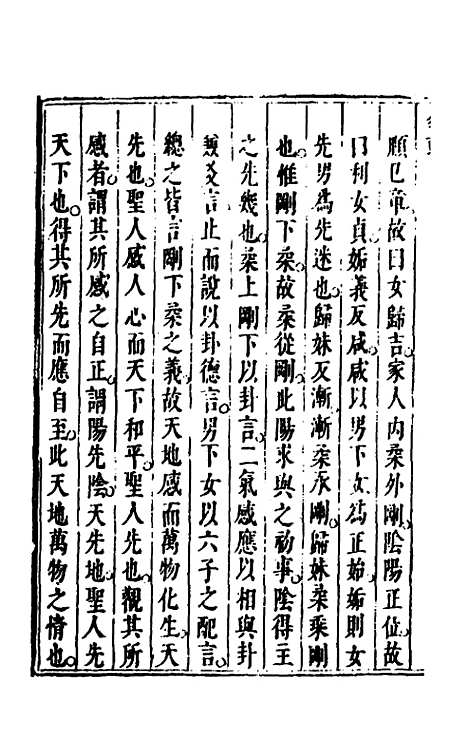 願已章故曰女歸吉家人内柔外剛陰陽正位故
曰利女貞姤義反咸咸以男下女爲正始姤則女
先男爲先迷也歸妹反漸漸柔承剛歸妹柔乘剛
也惟剛下柔故柔從剛此陽求與之初事陰得主
之先幾也柔上剛下以卦言二氣感應以相與卦
爻言止而說以卦德言男下女以六子之配言
總之皆言剛下柔之義故天地感而萬物化生天
先也聖人感人心而天下和平聖人先也觀其所
感者謂其所感之自正謂陽先陰天先地聖人先
天下也得其所先而應自至此天地萬物之情也